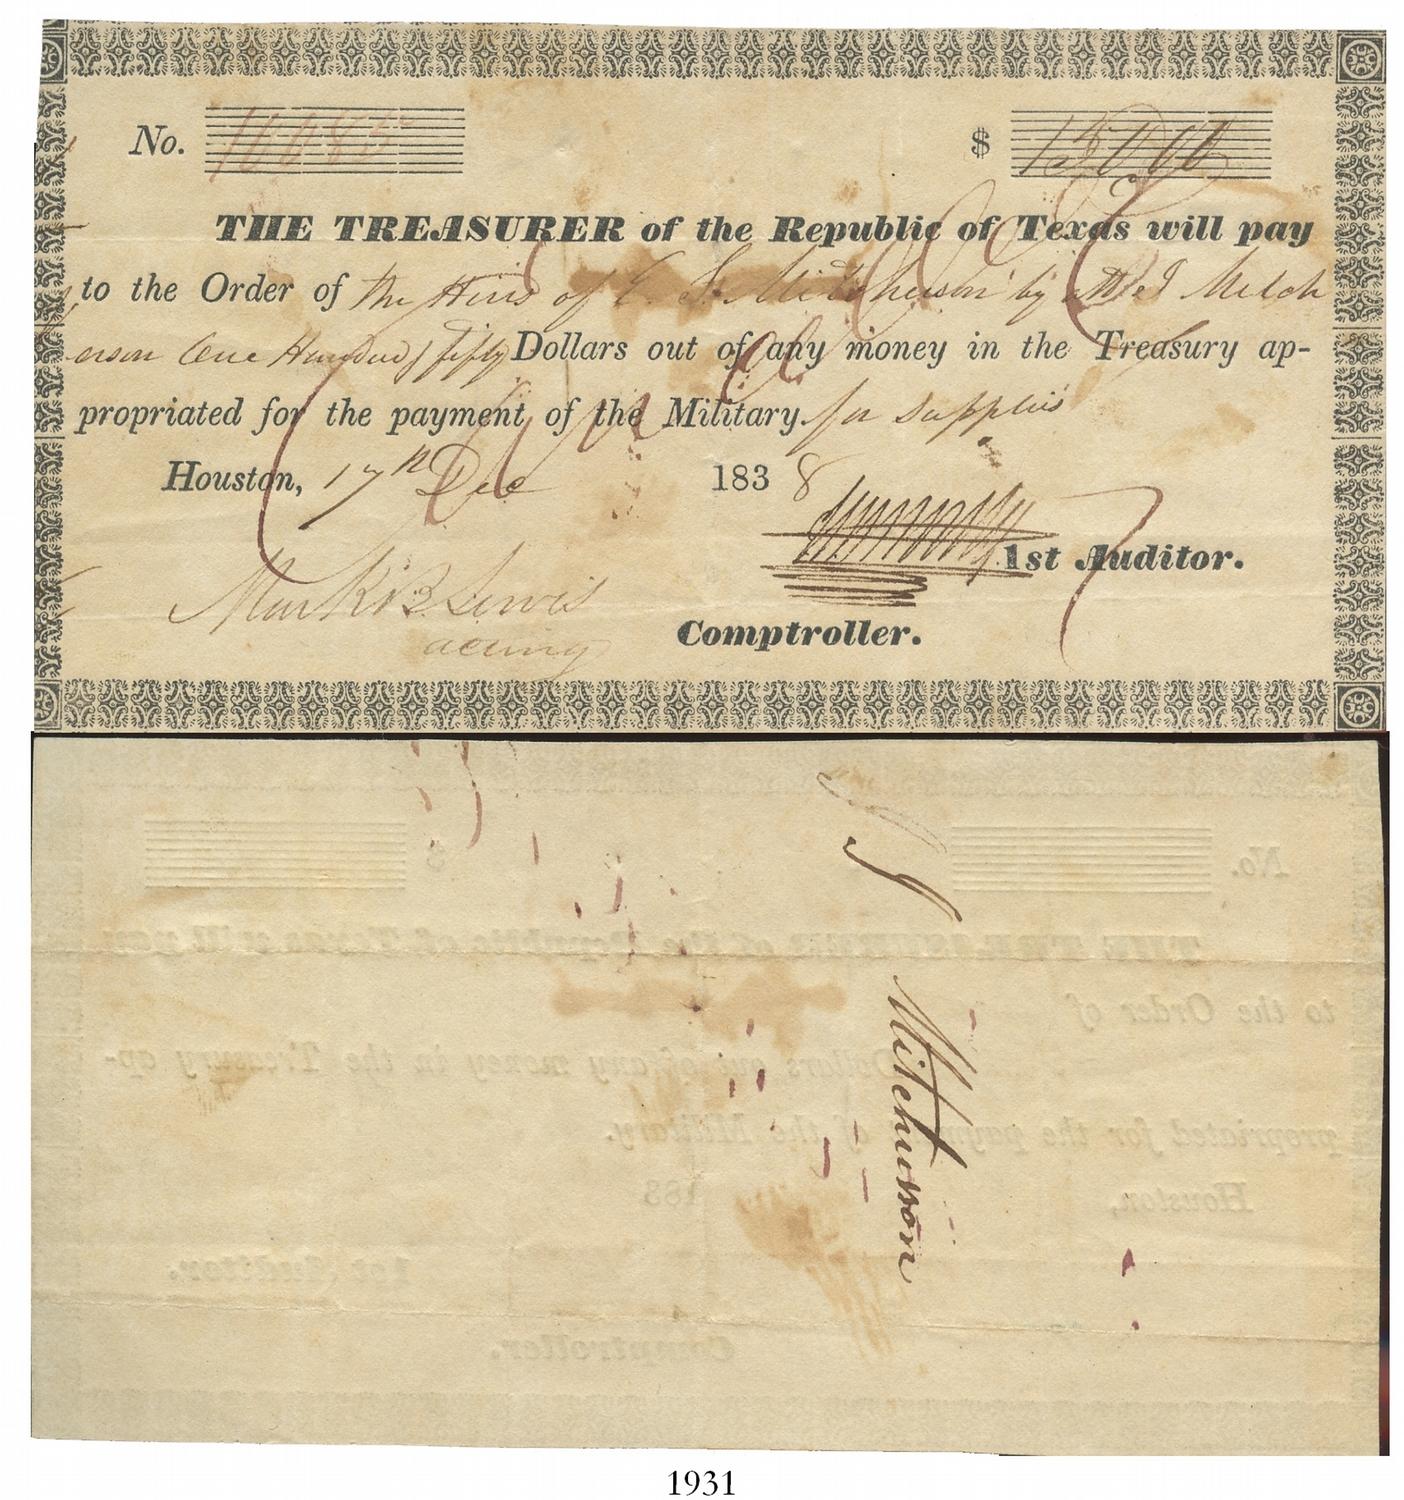 No. 10085
$ 150 00
THE TREASURER of the Republic of Texas will pay
to the Order of the Heirs of E. S. Mitcherson by Mitch
erson One Hundred fifty Dollars out of any money in the Treasury ap-
propriated for the payment of the Military for Supplies
Houston, 17th Dec 1838
1st Auditor.
Mark B Lewis
acting
Comptroller.
Mitcherson
1931